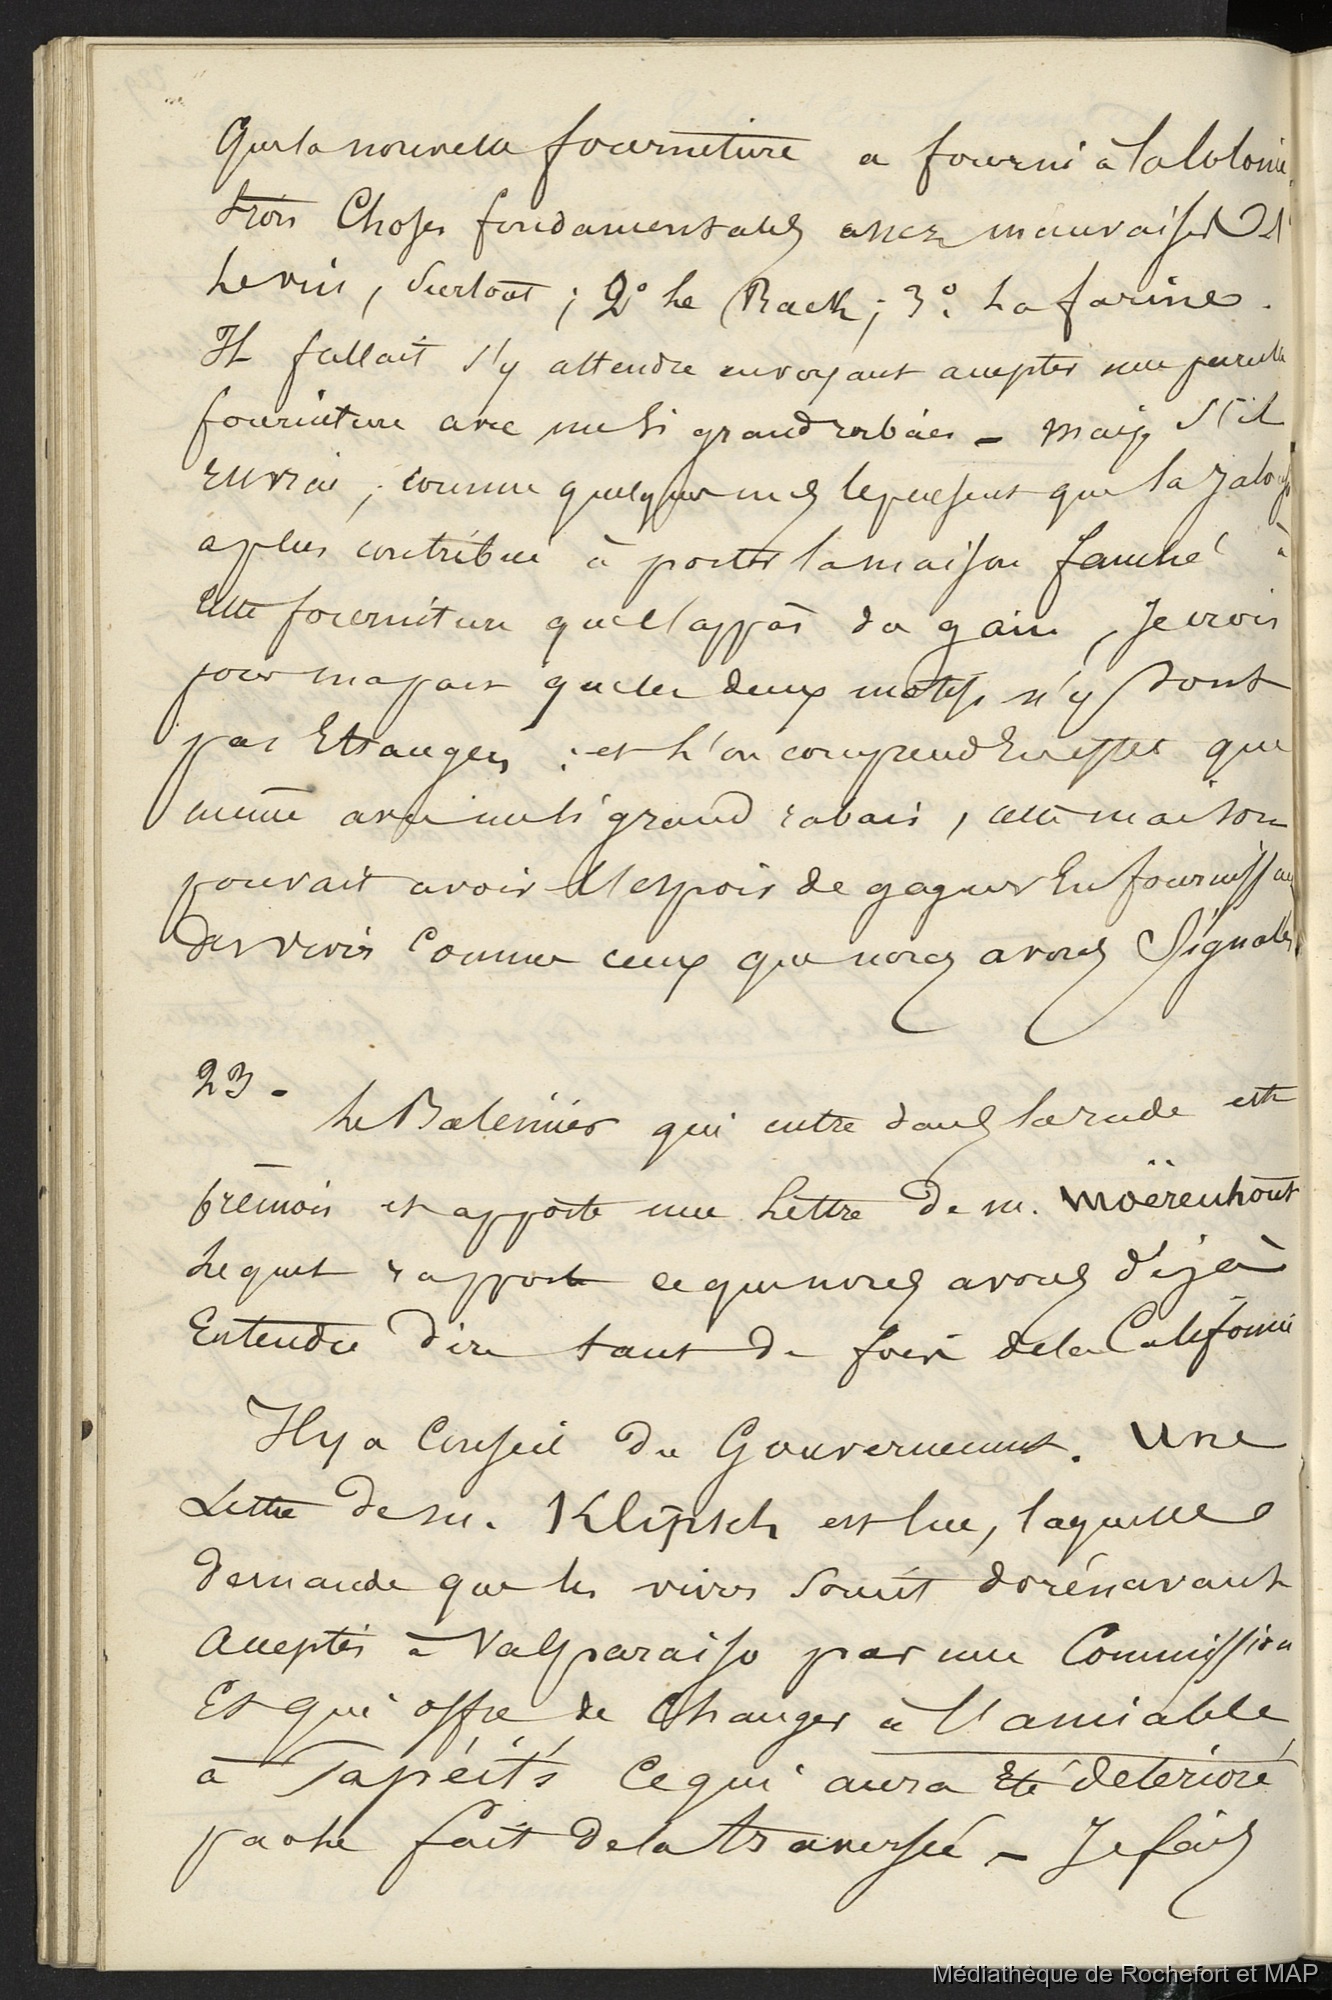 Que la nouvelle fourniture a fourni à la Colonie
trois Choses fondamentales assez mauvaises 1°
Le vin, surtout ; 2° Le Rack ; 3° La farine.
Il fallait s'y attendre en voyant accepter une pareille
fourniture avec un si grand rabais - mais s'il
est vrai, comme quelques uns le pensent que la jalousie
a plus contribué à porter la maison fauché à
cette fourniture que l'appât du gain, Je crois
pour ma part que les deux motifs n'y sont
pas Etrangers : et l'on comprend En effet que
même avec un si grand rabais, cette maison
pouvait avoir l'espoir de gagner En fournissant
des vivres Comme ceux que nous avons Signalés
23 -
Le Baleinier qui entre dans la rade est
brêmois et apporte une Lettre de m. Moërenhout
Lequel rapporte ce que nous avons déjà
Entendu dire tant de fois de la Californie
Il y a Conseil du Gouvernement. Une
Lettre de m. Klipsch est lue, laquelle
demande que les vivres soient dorénavant
Acceptés à Valparaiso par une Commission
Et qui offre de Changer à l'amiable
à Papéiti Ce qui aura Eté déterioré
par le fait de la traversée - Je fais
Médiathèque de Rochefort et MAP